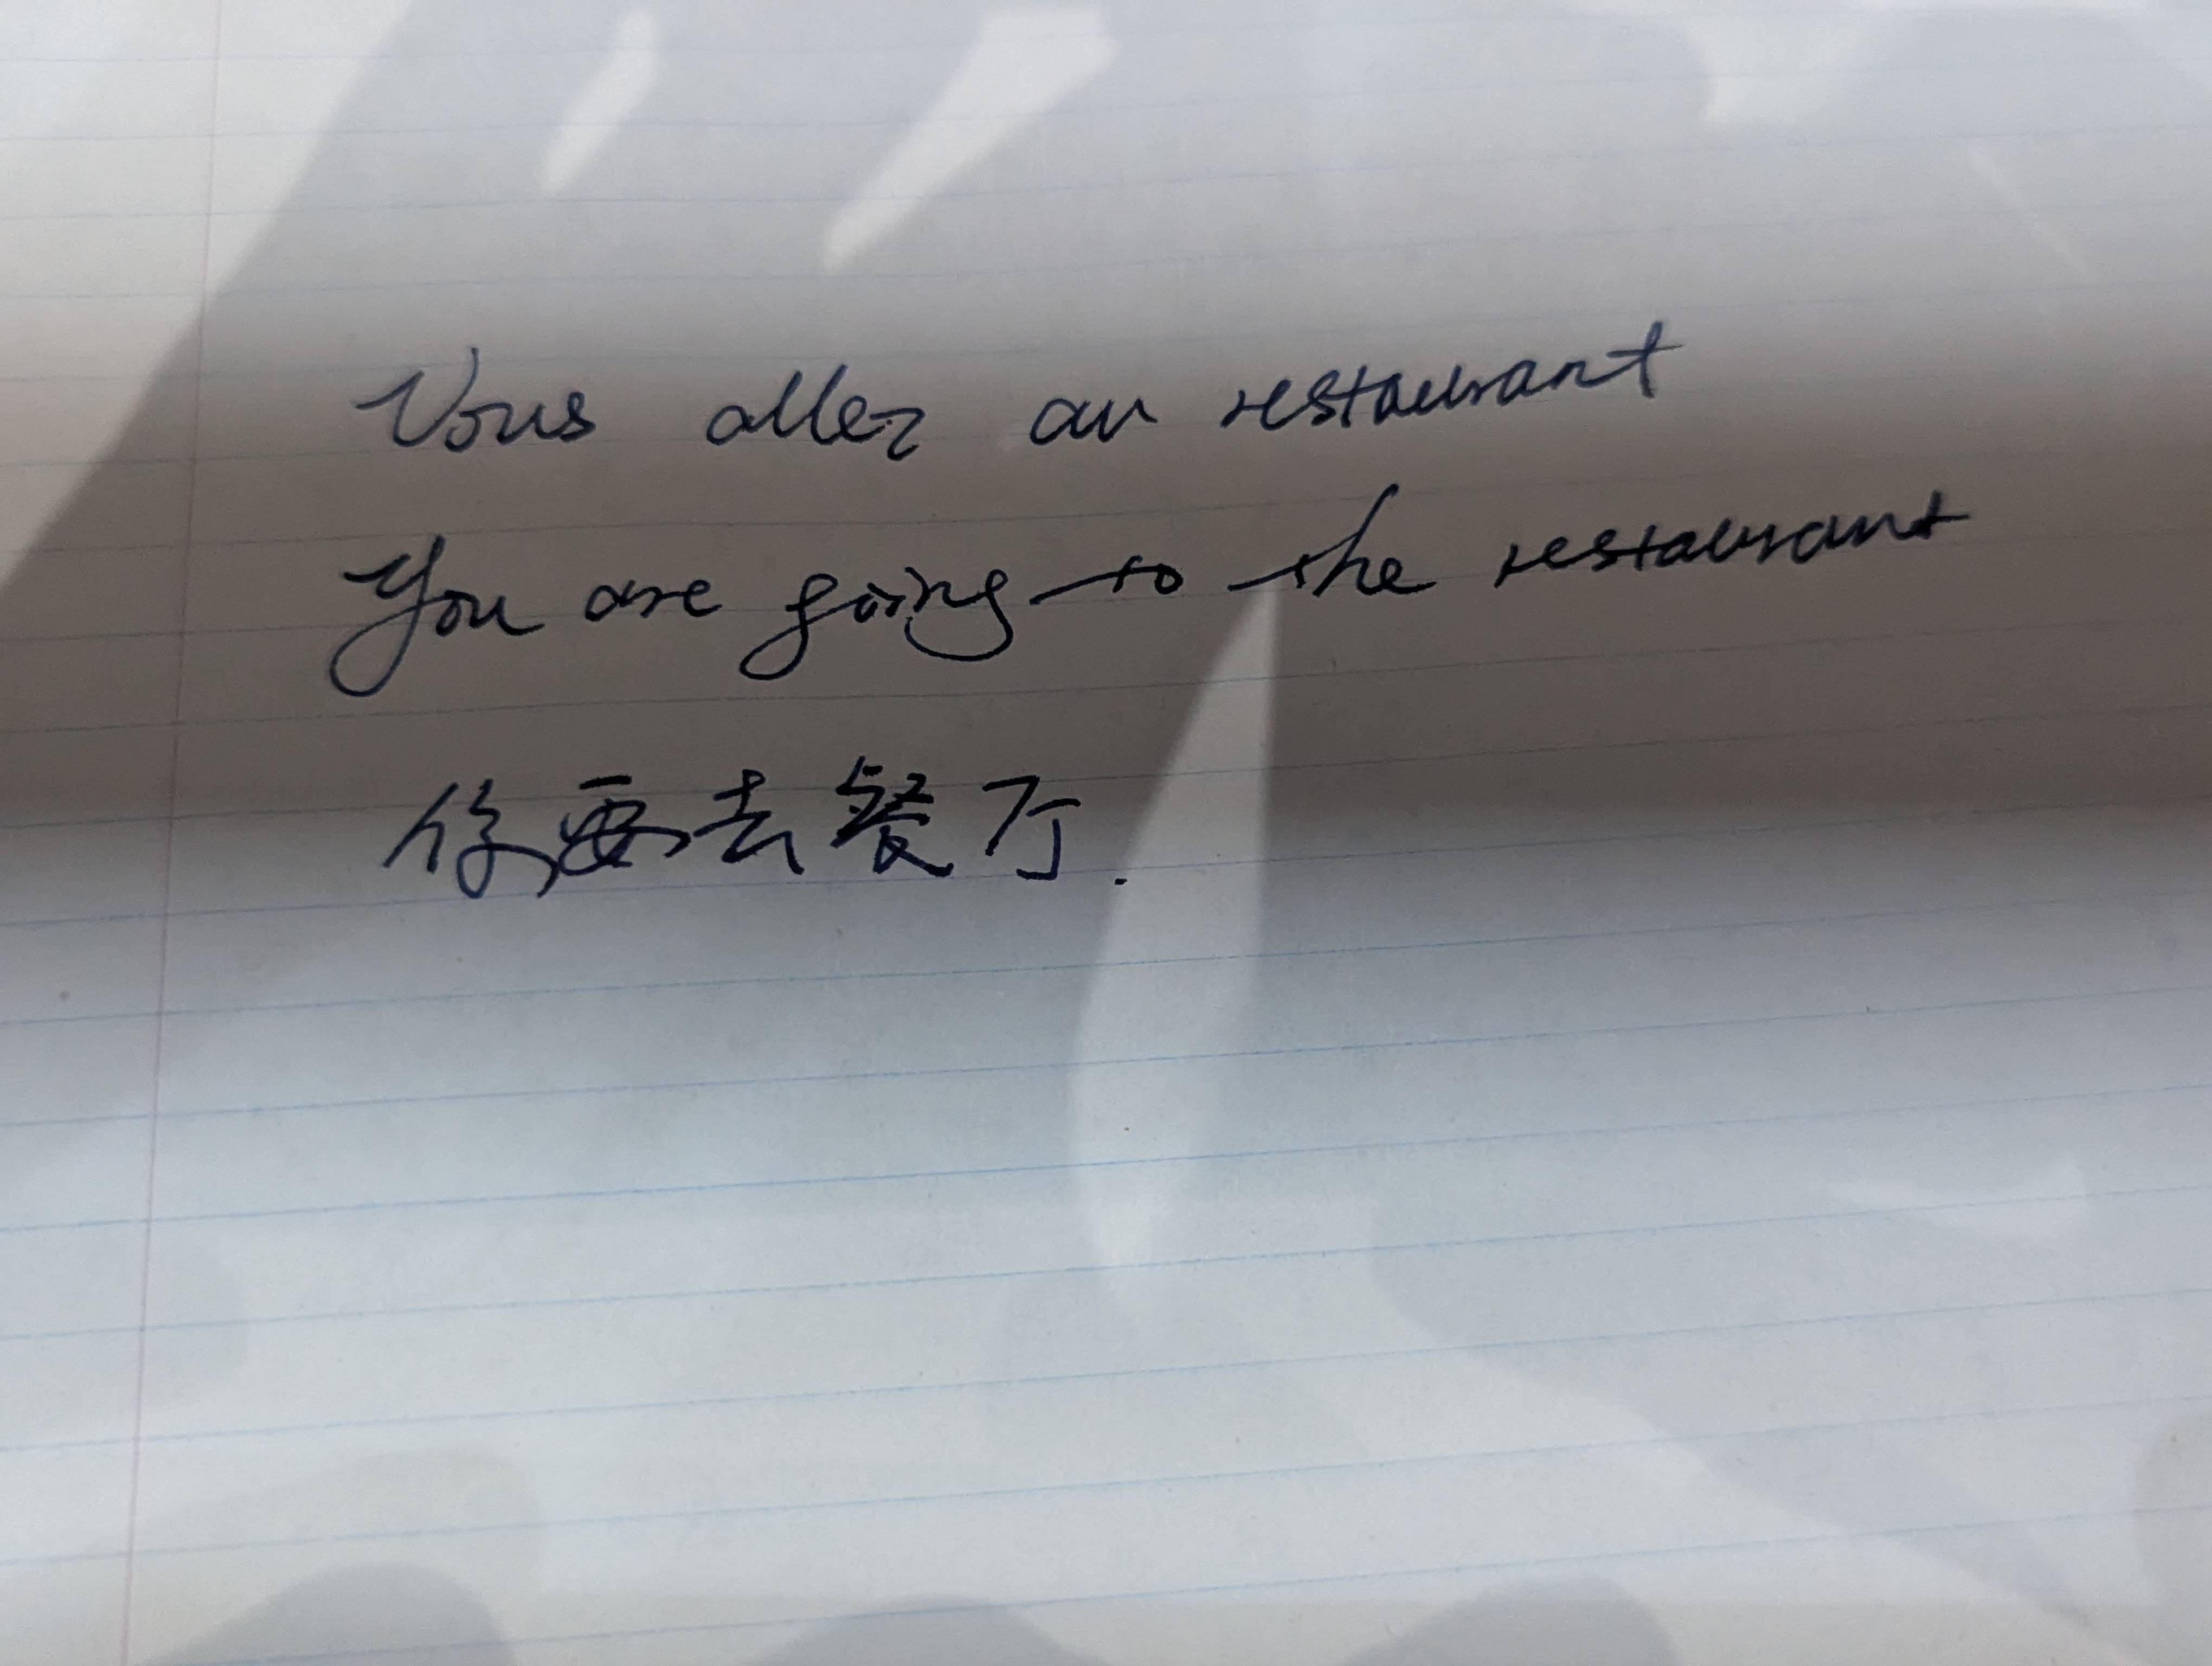 Vous allez au restaurant
You are going to the restaurant
你要去餐厅.